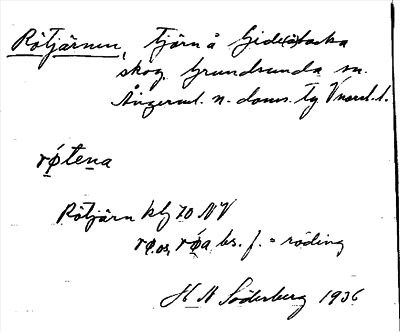 Rötjärnen, tjärn å Gide(å)backa
skog Grundsunda sn.
Ångerml. n. doms. tg Vnorrl. l.
røtena
Rötjärn kbl 70 NV
rø. os, røa bs. f. = röding
H N Söderberg 1936